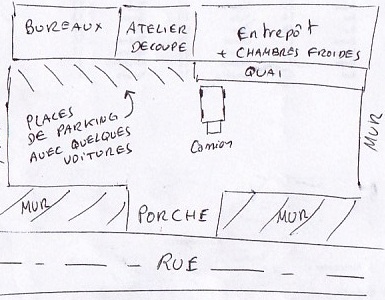 BUREAUX
ATELIER
DECOUPE
Entrepôt
+ CHAMBRES FROIDES
QUAI
PLACES
DE PARKING
AVEC QUELQUES
VOITURES
Camion
MUR
MUR
PORCHE
MUR
RUE